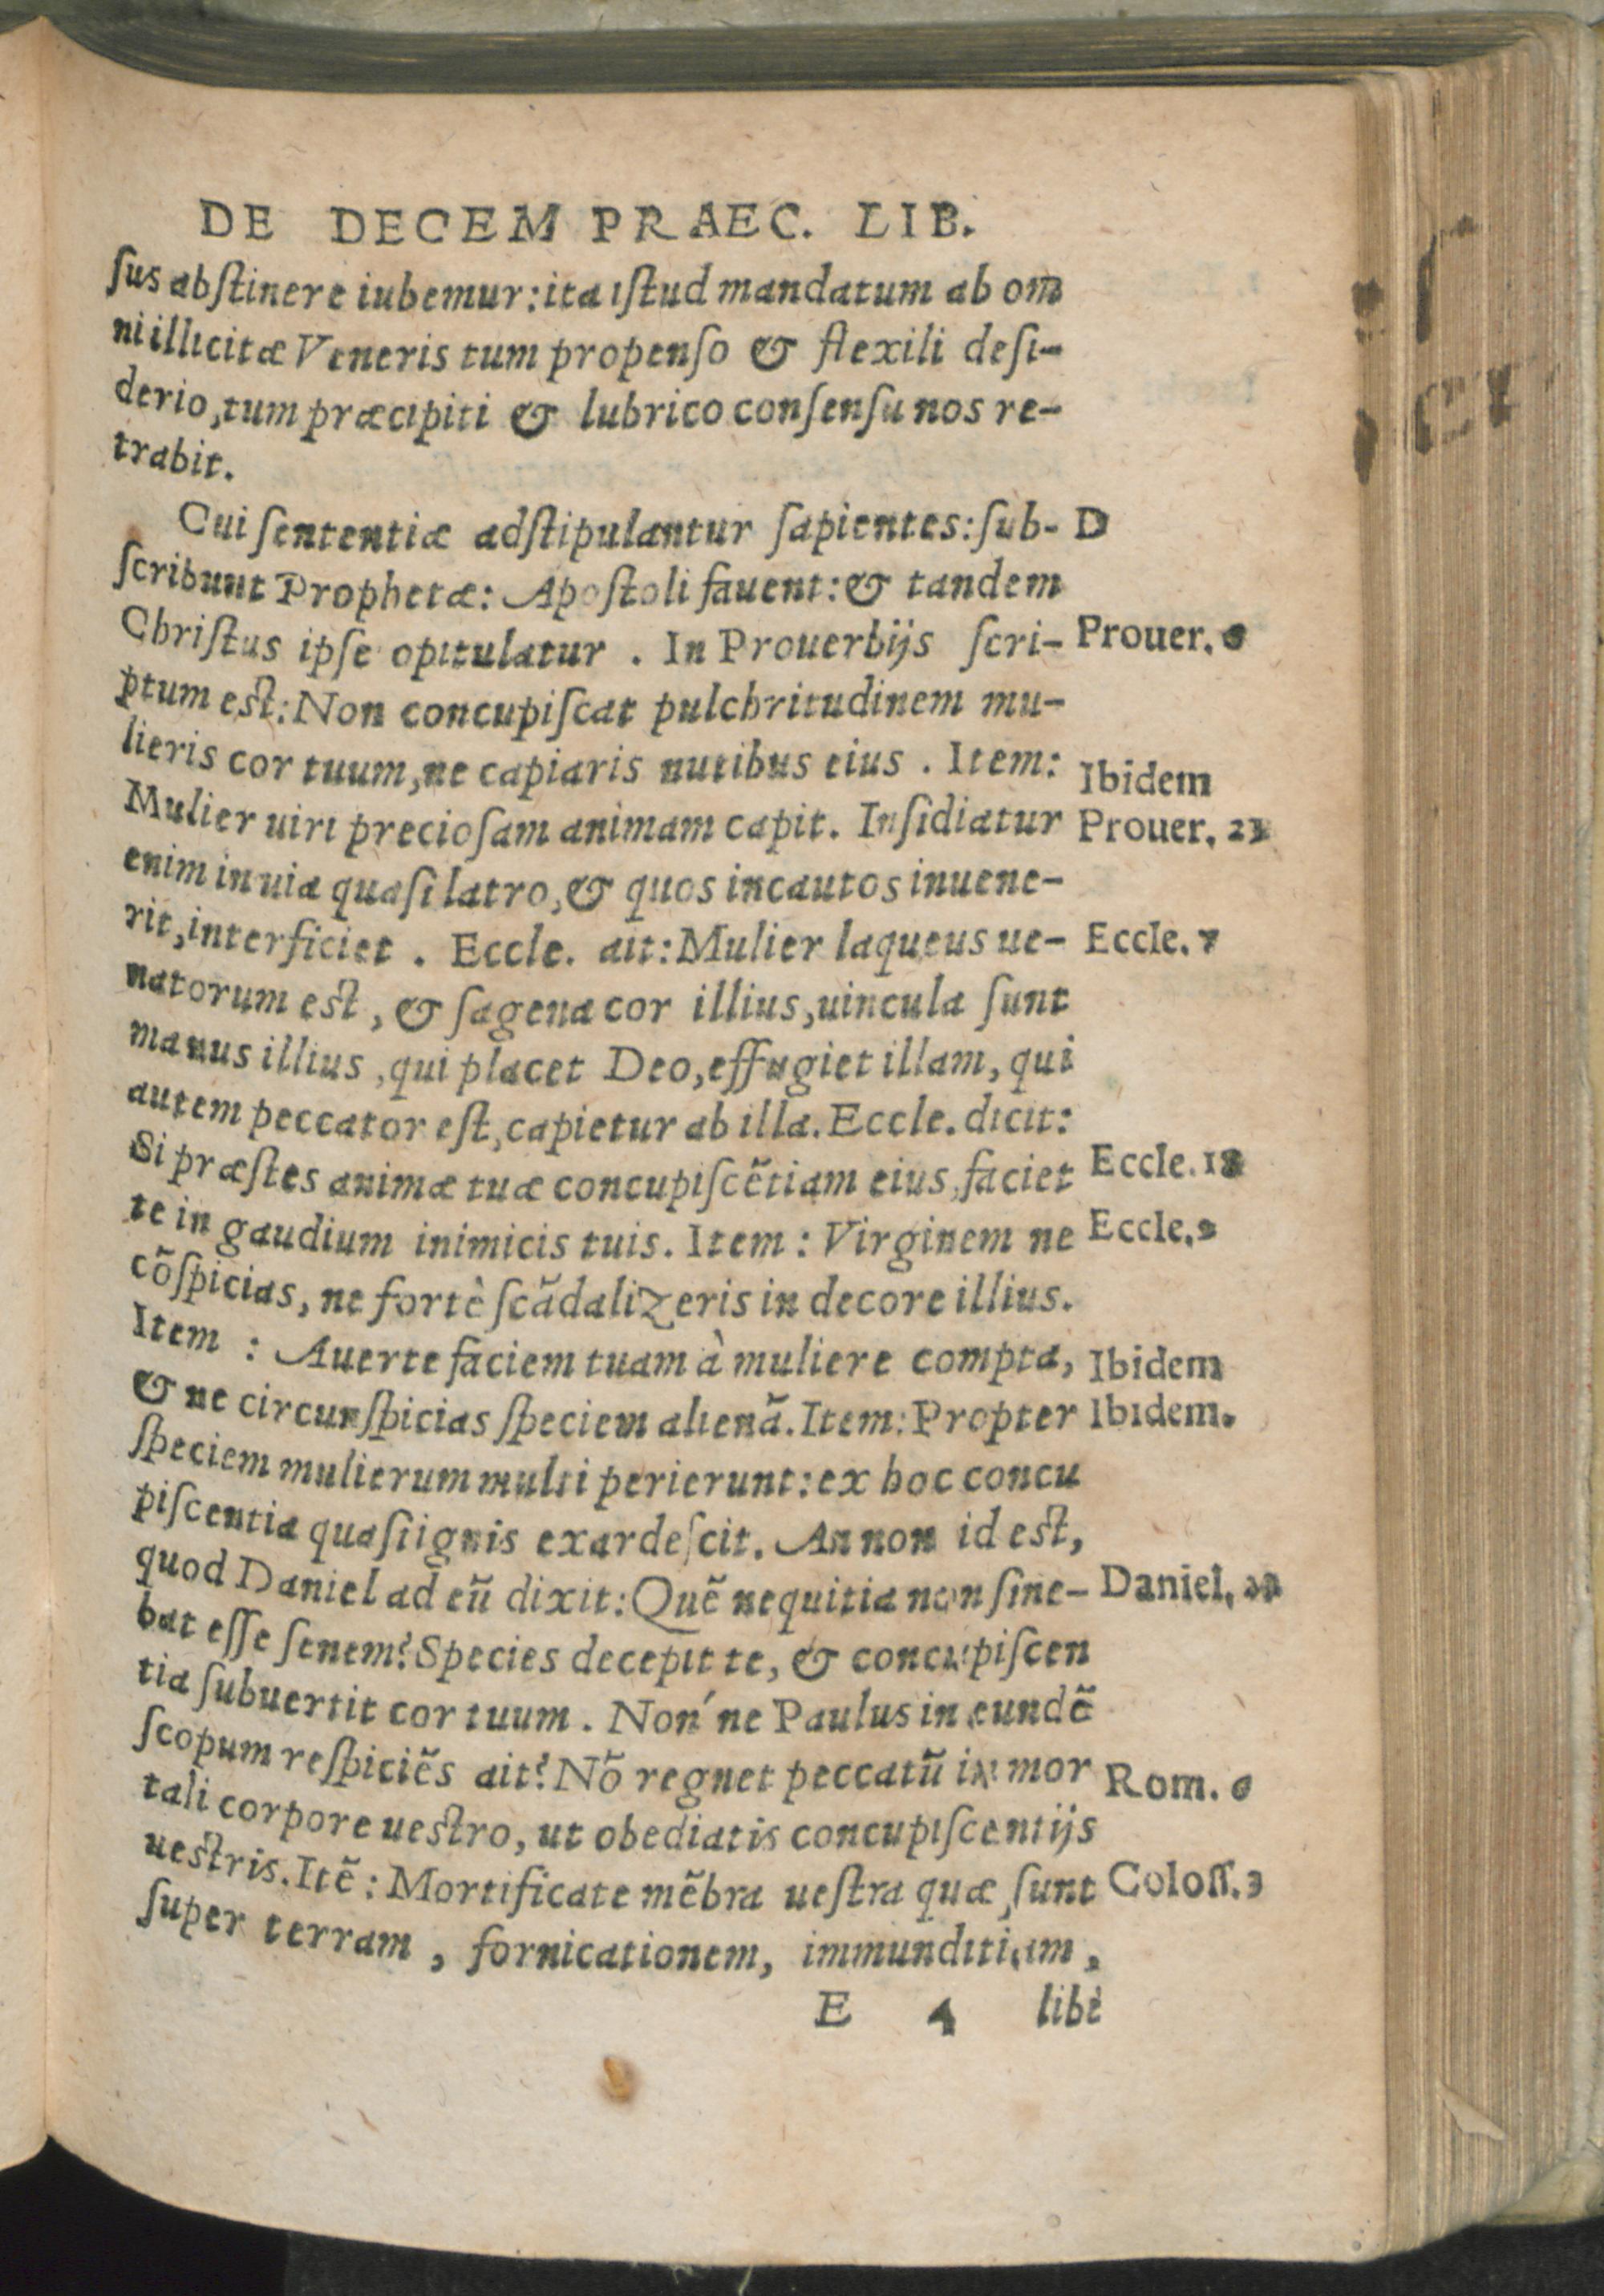 DE DECEM PRAEC. LIB.
ſus abſtinere iubemur: ita iſtud mandatum ab om
ni illicitæ Veneris tum propenſo & flexili deſi-
derio, tum præcipiti & lubrico conſenſu nos re-
trahit.
Cui ſententiæ adſtipulantur ſapientes: ſub- D
ſcribunt Prophetæ: Apoſtoli fauent: & tandem
Chriſtus ipſe opitulatur . In Prouerbijs ſcri- Prouer. 6
ptum eſt: Non concupiſcat pulchritudinem mu-
lieris cor tuum, ne capiaris nutibus eius . Item: Ibidem
Mulier uiri precioſam animam capit. Inſidiatur Prouer. 23
enim in uia quaſi latro, & quos incautos inuene-
rit, interficiet . Eccle. ait: Mulier laqueus ue- Eccle. 7
natorum eſt, & ſagena cor illius, uincula ſunt
manus illius, qui placet Deo, effugiet illam, qui
autem peccator eſt, capietur ab illa. Eccle. dicit:
Si præſtes animæ tuæ concupiſcẽtiam eius, faciet Eccle. 18
te in gaudium inimicis tuis. Item : Virginem ne Eccle. 9
cõſpicias, ne fortè ſcãdalizeris in decore illius.
Item : Auerte faciem tuam à muliere compta, Ibidem
& ne circunſpicias ſpeciem alienã. Item: Propter Ibidem.
ſpeciem mulierum multi perierunt: ex hoc concu
piſcentia quaſi ignis exardeſcit. An non id eſt,
quod Daniel ad eũ dixit: Quẽ nequitia non ſine- Daniel.
bat eſſe ſenem? Species decepit te, & concupiſcen
tia ſubuertit cor tuum . Non´ne Paulus in eundẽ
ſcopum reſpiciẽs ait? Nõ regnet peccatũ in mor Rom. 6
tali corpore ueſtro, ut obediatis concupiſcentijs
ueſtris. Itẽ : Mortificate mẽbra ueſtra quæ ſunt Coloſſ. 3
ſuper terram , fornicationem, immunditiam ,
E 4 libi